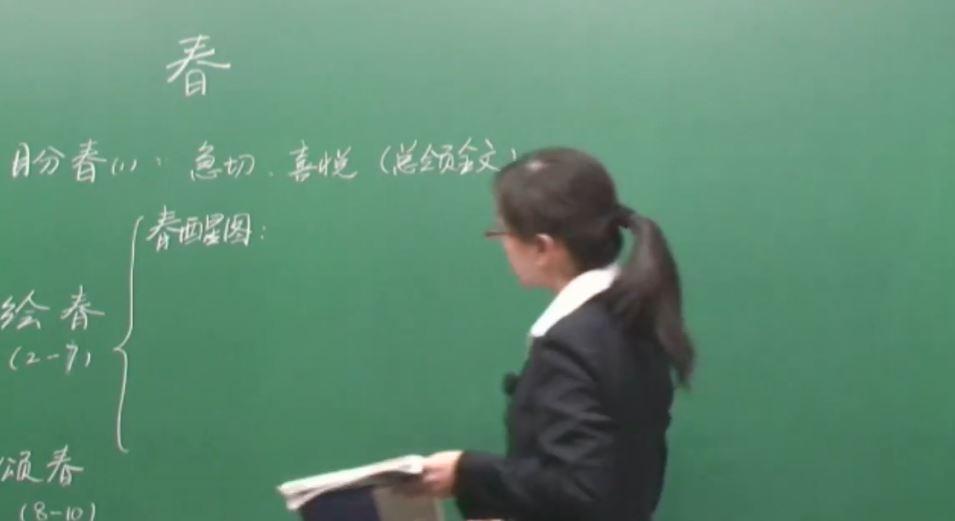 春
盼春(1): 急切、喜悦(总领全文)
春醒图:
绘春
(2-7)
颂春
(8-10)